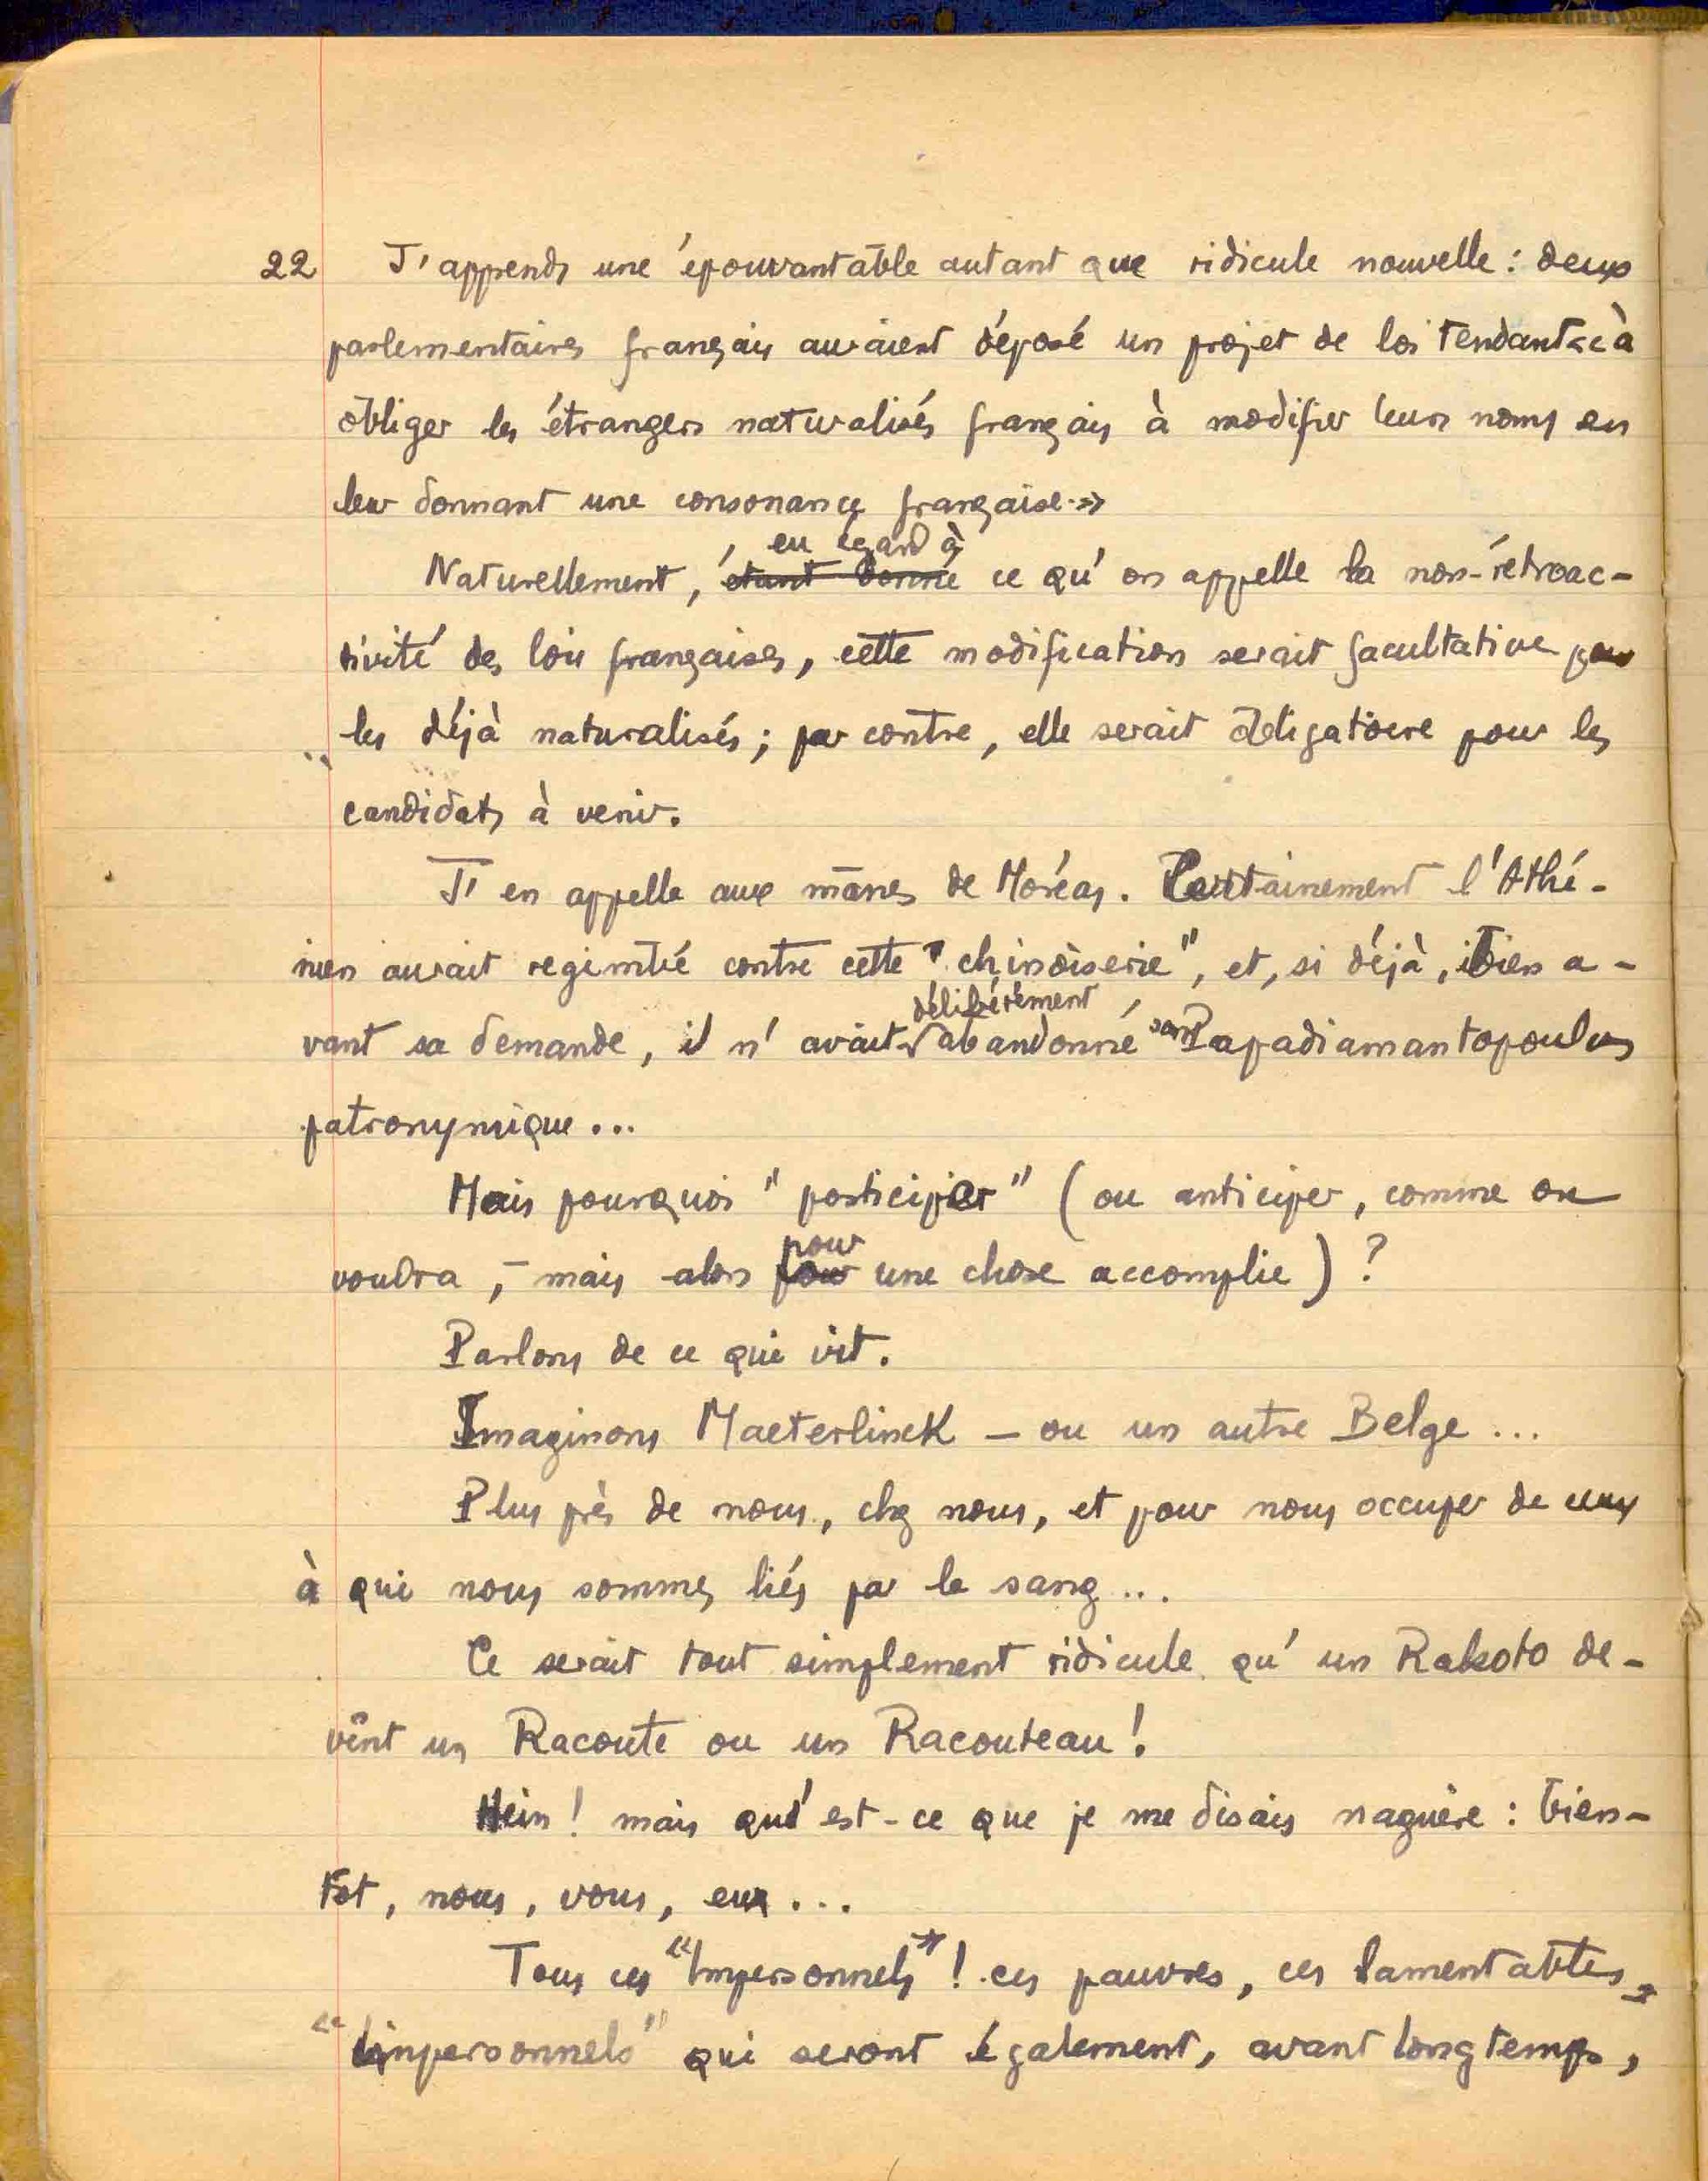 22 J'apprends une épouvantable autant que ridicule nouvelle : deux
parlementaires français auraient déposé un projet de loi tendant à
obliger les étrangers naturalisés français à modifier leurs noms en
leur donnant une consonance française.
eu égard à
Naturellement, étant donné ce qu'on appelle la non-rétroac-
tivité des lois françaises, cette modification serait facultative pour
les déjà naturalisés ; par contre, elle serait obligatoire pour les
candidats à venir.
J'en appelle aux mânes de Moréas. Certainement l'Athé-
nien aurait regimbé contre cette "chinoiserie", et, si déjà, bien a-
délibérément
vant sa demande, il n'avait abandonné son Papadiamantopoulos
patronymique...
Mais pourquoi "posticiper" (ou anticiper, comme on
pour
voudra, - mais alors pour une chose accomplie) ?
Parlons de ce qui vit.
Imaginons Maeterlinck - ou un autre Belge...
Plus près de nous, chez nous, et pour nous occuper de ceux
à qui nous sommes liés par le sang...
Ce serait tout simplement ridicule qu'un Rakoto de-
vînt un Racoute ou un Racouteau !
Hein ! mais qu'est-ce que je me disais naguère : bien-
tôt, nous, vous, eux...
Tous ces "Impersonnels" ! ces pauvres, ces lamentables
"impersonnels" qui seront également, avant longtemps,